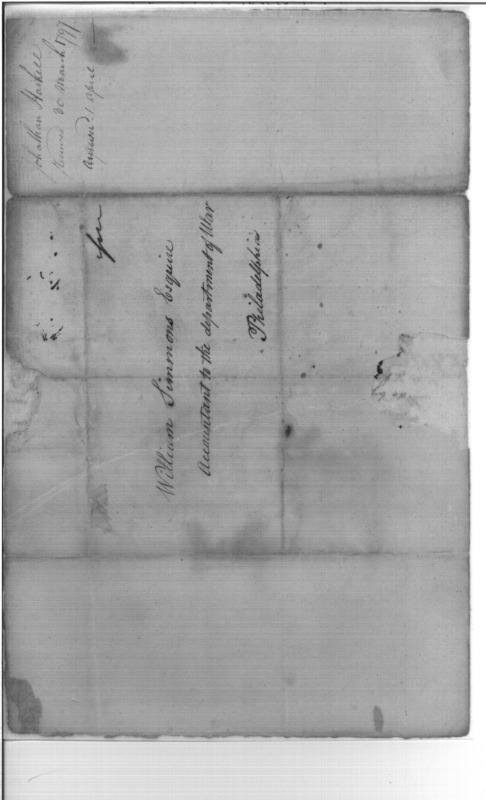 Jonathan Haskell
received 30 March 1797
answered 1 april
free
William Simmons Esquire
Accountant to the department of War
Philadelphia